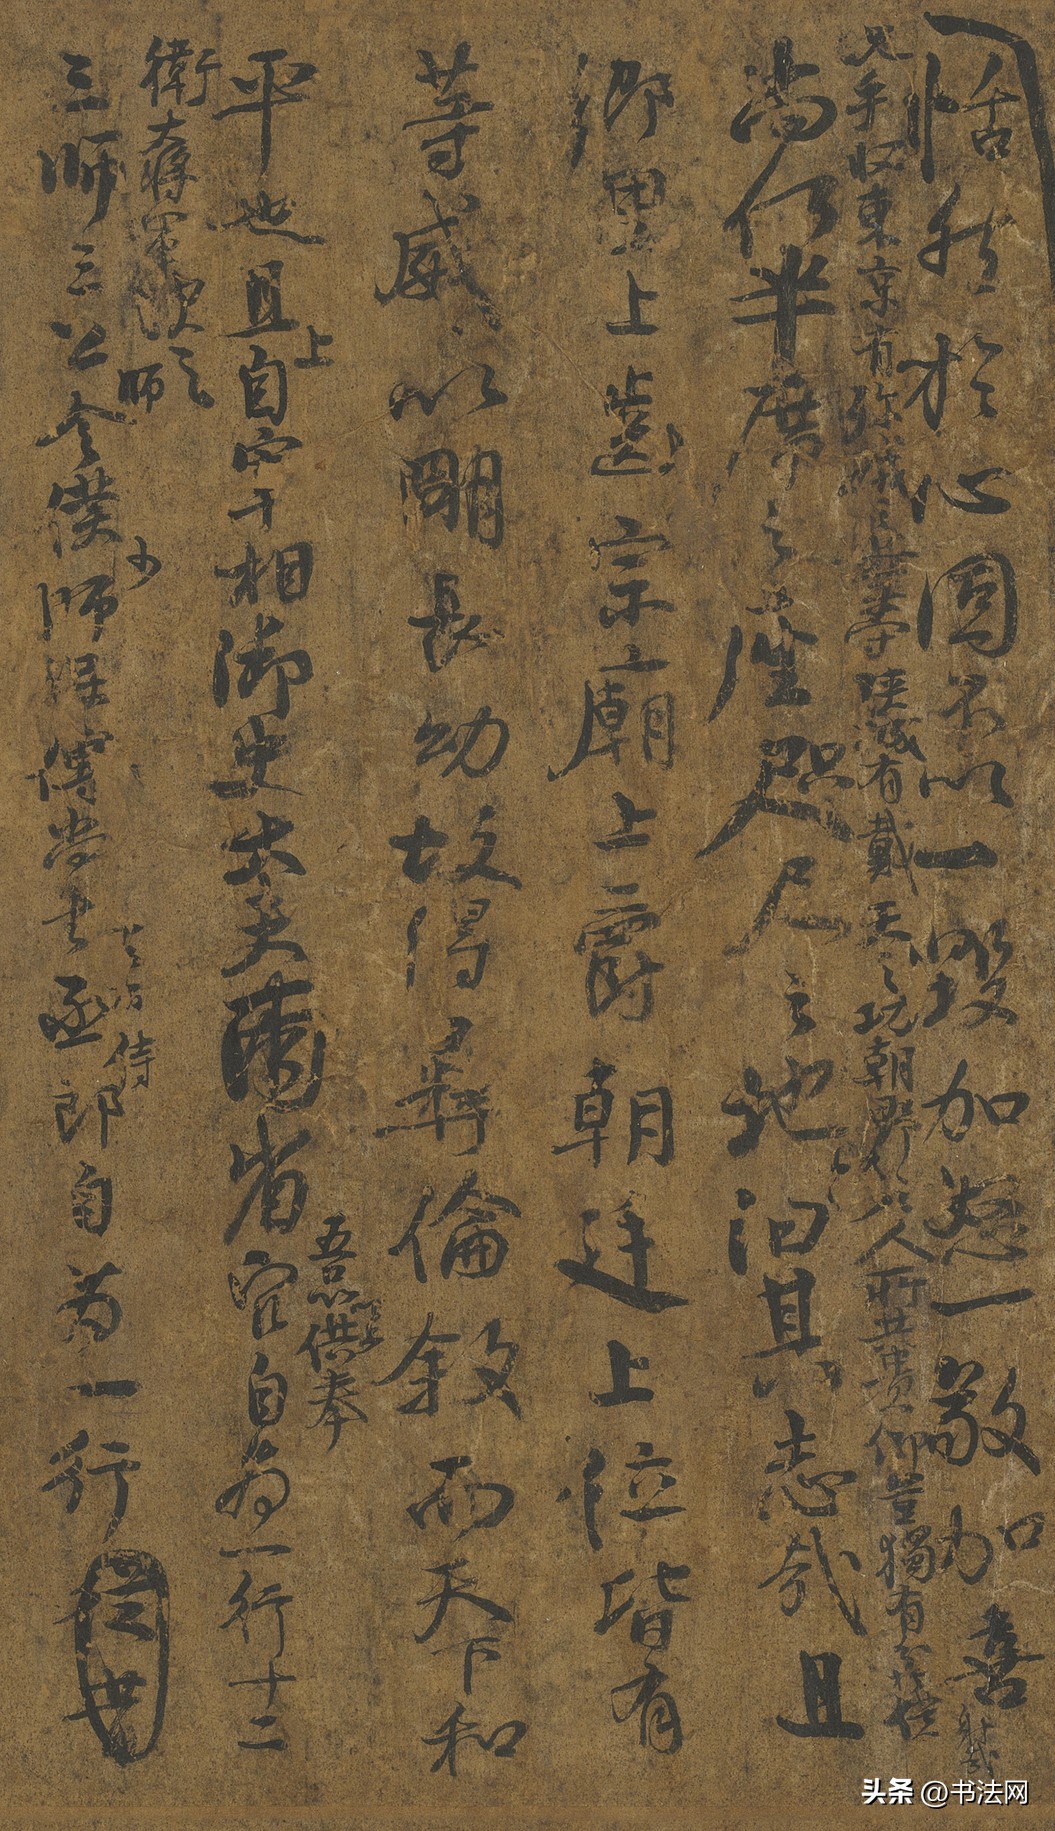 恬然於心固不以一毀加怒一敬加喜
收東京有殄賊之業守陝城有戴天之功朝野之人所共貴仰豈獨有分於僕哉
尚何半席之座咫尺之地能汩其志哉且
鄉里上齒宗廟上爵朝廷上位皆有
等威以明長幼故得彝倫敘而天下和
平也且上自宰相御史大夫兩省五品供奉官自為一行十二
衛大將軍次之
三師三公令僕少師保傅尚書左右丞侍郎自為一行
头条 @书法网